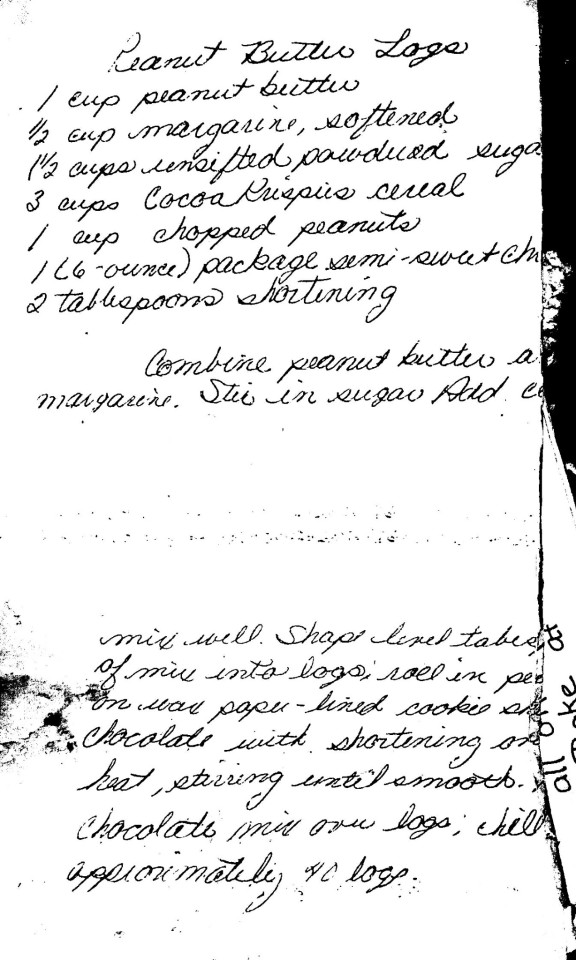 Peanut Butter Logs
1 cup peanut butter
1/2 cup margarine, softened
1 1/2 cups unsifted powdured suga
3 cups Cocoa Krispies cereal
1 cup chopped peanuts
1 (6-ounce) package semi-sweet ch
2 tablespoons shortening
Combine peanut butter a
margarine. Stir in sugar Add c
mix well. Shape level tables
of mix into logs; roll in pe
on wax paper-lined cookie s
chocolate with shortening
heat, stirring until smooth.
chocolate mix over logs; chill
approximately 40 logs.
all on at
make